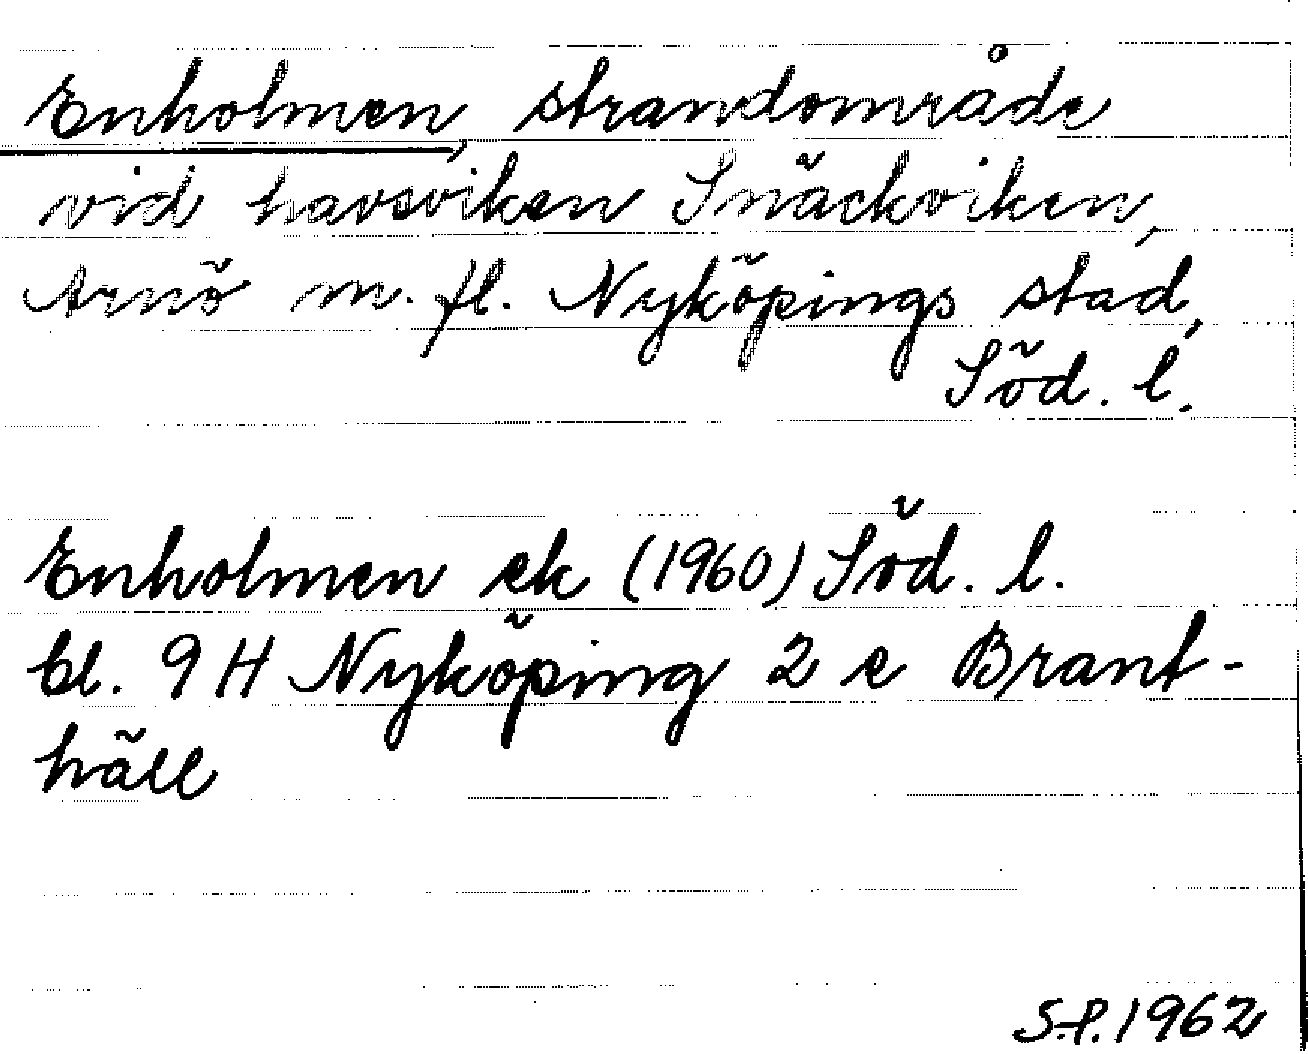 Enholmen, strandområde
vid havsviken Snäckviken,
Arnö m. fl. Nyköpings stad,
Söd. l.
Enholmen ek (1960) Söd. l.
bl. 9 H Nyköping 2 e Brant-
häll
S.P. 1962